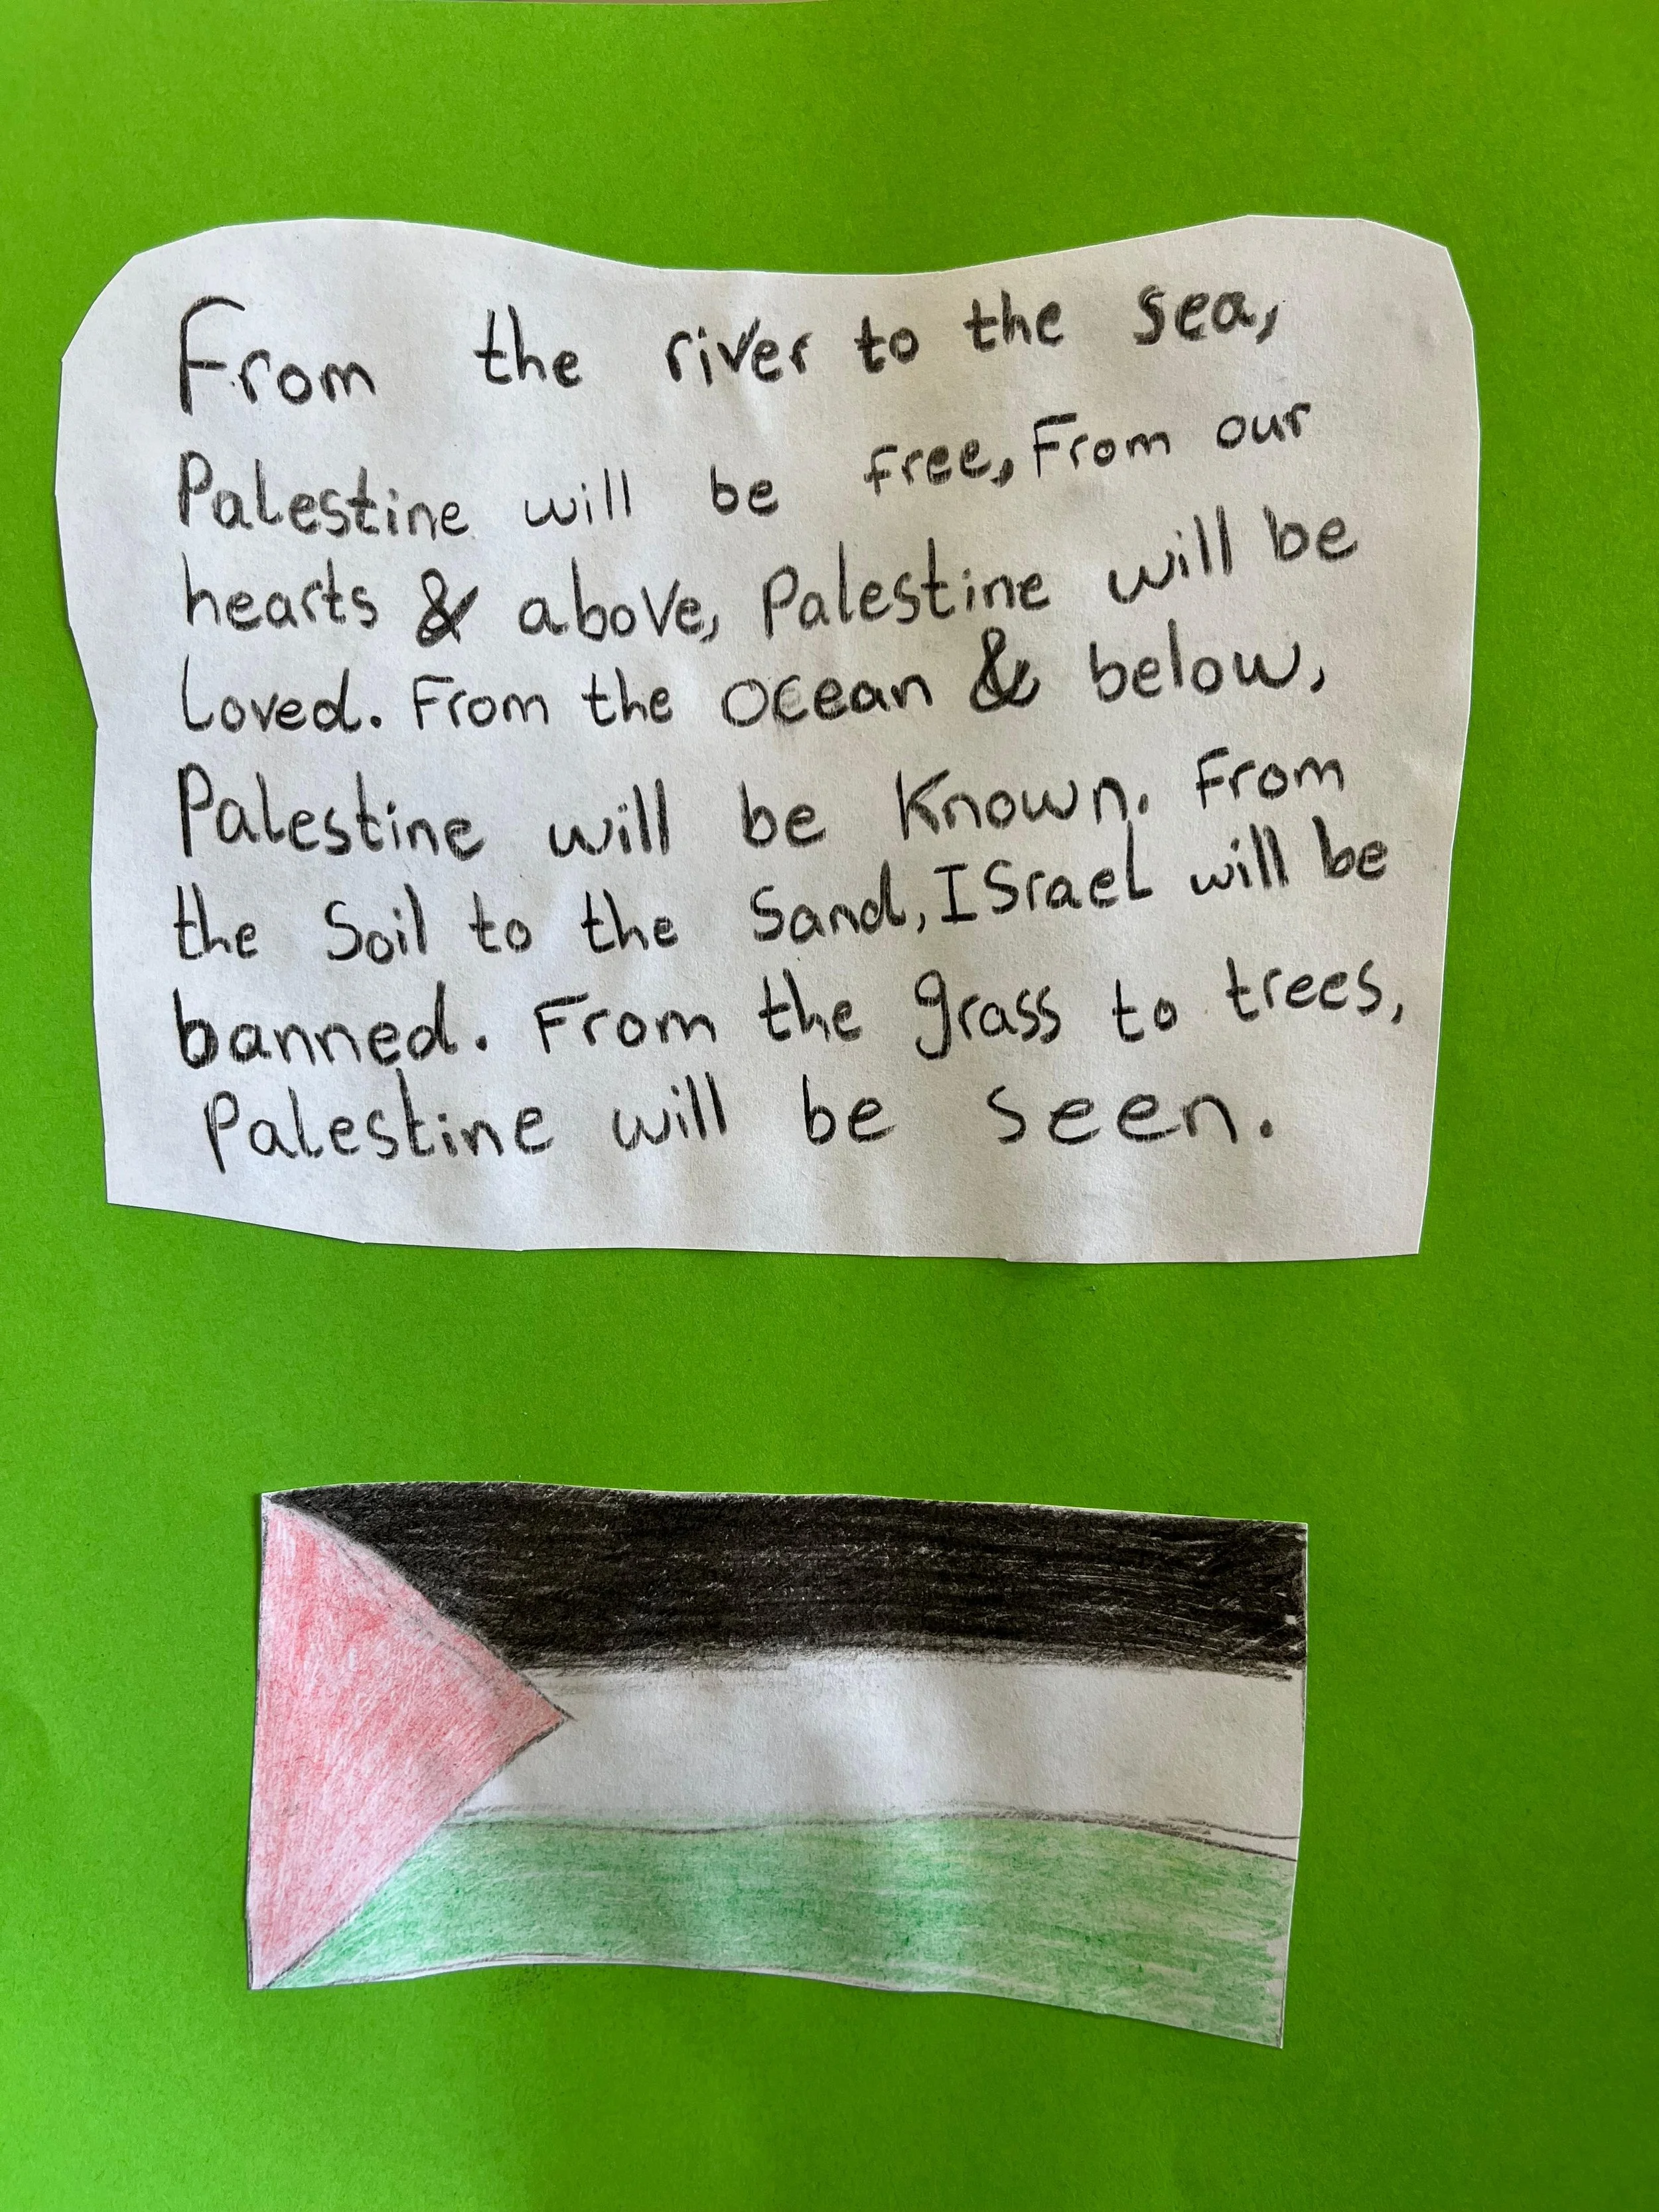 From the river to the sea,
Palestine will be free, From our
hearts & above, Palestine will be
Loved. From the ocean & below,
Palestine will be Known. From
the Soil to the Sand, ISrael will be
banned. From the grass to trees,
Palestine will be seen.